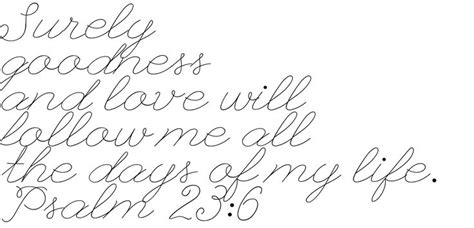 Surely
goodness
and love will
follow me all
the days of my life.
Psalm 23:6